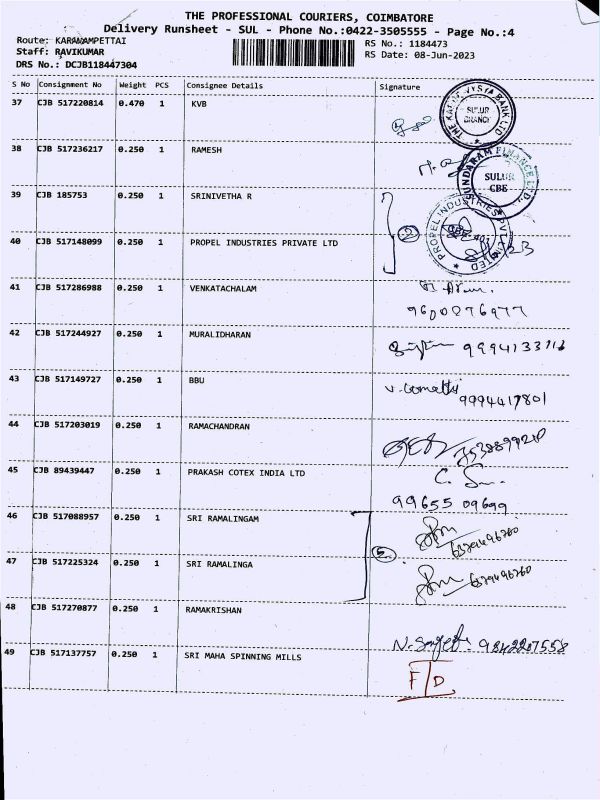 THE PROFESSIONAL COURIERS, COIMBATORE
Delivery Runsheet - SUL - Phone No.:0422-3505555 - Page No.:4
Route: KARANAMPETTAI
RS No.: 1184473
Staff: RAVIKUMAR
RS Date: 08-Jun-2023
DRS No.: DCJB118447304
S No Consignment No Weight PCS Consignee Details Signature
37 CJB 517220814 0.470 1 KVB
THE KARUR VYSYA BANK LTD
SULUR
BRANCH
38 CJB 517236217 0.250 1 RAMESH
SUNDARAM FINANCE LTD.,
SULUR
CBE
39 CJB 185753 0.250 1 SRINIVETHA R
PROPEL INDUSTRIES PVT LIMITED
40 CJB 517148099 0.250 1 PROPEL INDUSTRIES PRIVATE LTD
2
41 CJB 517286988 0.250 1 VENKATACHALAM
9600276977
42 CJB 517244927 0.250 1 MURALIDHARAN
43 CJB 517149727 0.250 1 BBU
9994417801
44 CJB 517203019 0.250 1 RAMACHANDRAN
45 CJB 89439447 0.250 1 PRAKASH COTEX INDIA LTD
99655 09699
46 CJB 517088957 0.250 1 SRI RAMALINGAM
47 CJB 517225324 0.250 1 SRI RAMALINGA
48 CJB 517270877 0.250 1 RAMAKRISHAN
9842207558
49 CJB 517137757 0.250 1 SRI MAHA SPINNING MILLS
F/D